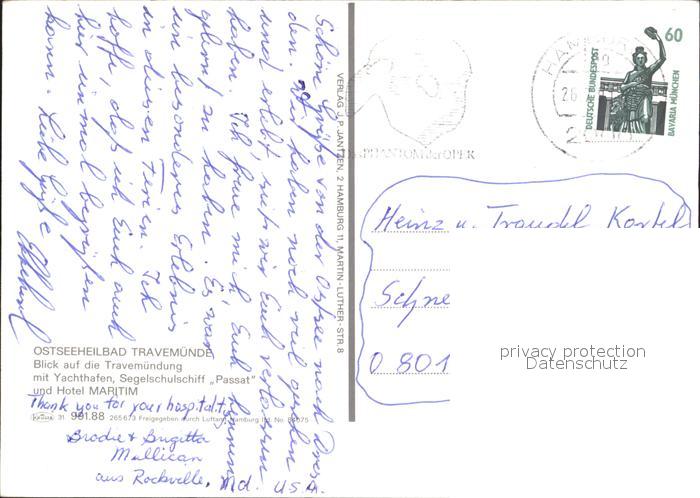 Schöne Grüße von der Ostsee nach Dres-
den. Wir haben noch viel gesehen
und erlebt, seit wir Euch verlassen
haben. Ich freue mich, Euch kennen
gelernt zu haben. Es war
ein besonderes Erlebnis
in diesen Ferien. Ich
hoffe, daß ich Euch auch
hier einmal begrüßen
kann. Liebe Grüße
VERLAG J. P. JANTZEN, 2 HAMBURG 11, MARTIN-LUTHER-STR. 8
OSTSEEHEILBAD TRAVEMÜNDE
Blick auf die Travemündung
mit Yachthafen, Segelschulschiff „Passat"
und Hotel MARITIM
Thank you for your hospitality
31 991.88 265673 Freigegeben durch Luftamt Hamburg
Brodie & Brigitta
Mullican
aus Rockville, Md. U.S.A.
HAMBURG
26
PHANTOM der OPER
60
DEUTSCHE BUNDESPOST
BAVARIA MÜNCHEN
Heinz u. Traudel Kartel
Schne
O 801
privacy protection
Datenschutz